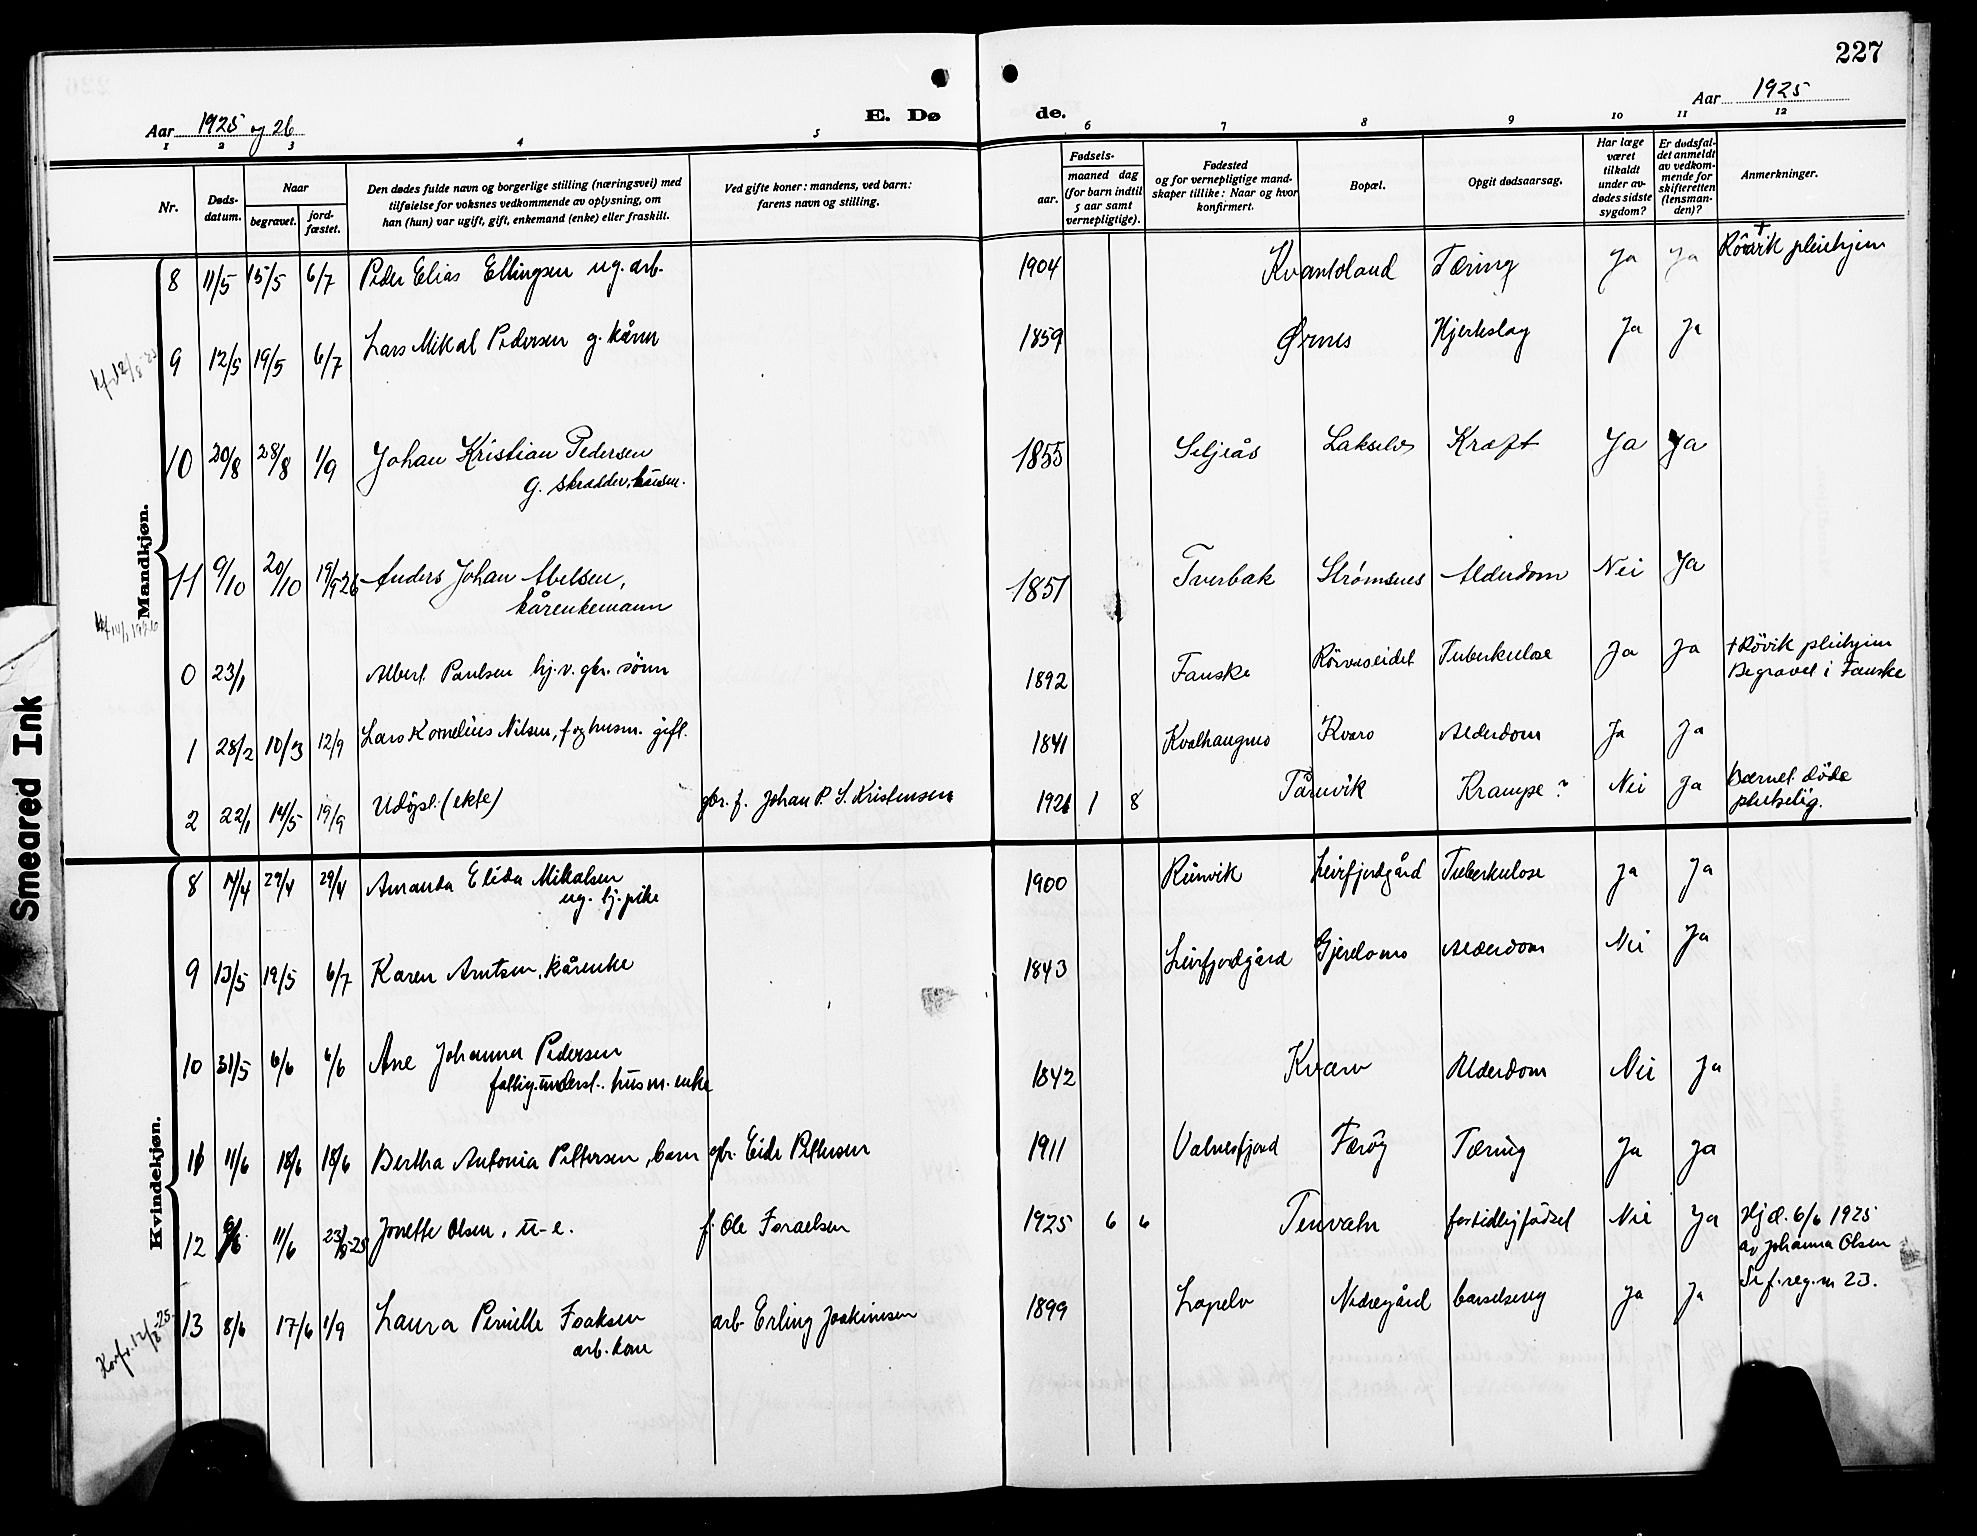 227
Aar 1925 og 26
E. Dø
de.
Aar 1925
1 2 3 4 5 6 7 8 9 10 11 12
Nr.
Døds-
datum.
Naar
begravet.
jord-
fæstet.
Den dødes fulde navn og borgerlige stilling (næringsvei) med
tilføielse for voksnes vedkommende av oplysning, om
han (hun) var ugift, gift, enkemand (enke) eller fraskilt.
Ved gifte koner: mandens, ved barn:
farens navn og stilling.
Fødsels-
aar.
maaned dag
(for barn indtil
5 aar samt
vernepligtige).
Fødested
og for vernepligtige mand-
skaper tillike: Naar og hvor
konfirmert.
Bopæl.
Opgit dødsaarsag.
Har læge
været
tilkaldt
under av-
dødes sidste
sygdom?
Er dødsfal-
det anmeldt
av vedkom-
mende for
skifteretten
(lensman-
den)?
Anmerkninger.
Mandkjøn.
8 11/5 15/5 6/7 Peder Elias Ellingsen ug. arb. 1904 Kvantoland Tæring Ja Ja Rövik pleiehjem
9 12/5 19/5 6/7 Lars Mikal Pedersen g. kårm 1859 Ørnes Hjerteslag Ja Ja
10 20/8 28/8 1/9 Johan Kristian Pedersen 1855 Seljeås Lakselv Kræft Ja Ja
g. skrædder, husm.
11 9/10 20/10 19/9 26 Anders Johan Abelsen, 1851 Tverbak Strømsnes Alderdom Nei Ja
kårenkemann
14/1 1926
0 23/1 Albert Paulsen hj. v. gbr. sönn 1892 Fauske Tuberkulose Ja Ja † Rövik pleiehjem
Begravet i Fauske
1 28/2 10/3 12/9 Lars Kornelius Nilsen, f og husm. gift. 1841 Kvalhaugmo Kvarv Alderdom Ja Ja
2 22/1 14/5 19/9 Udöpt (ekte) gbr. f. Johan P. S. Kristensen 1926 1 8 Tårnvik Krampe? Nei Ja Barnet döde
plutselig.
Kvindekjøn.
8 29/4 29/4 Amanda Elida Mikalsen 1900 Leirfjordgård Tuberkulose Ja Ja
ug. hj. pike
9 13/5 19/5 6/7 Karen Arntsen, kårenke 1843 Leirfjordgård Alderdom Nei Ja
10 31/5 6/6 6/6 Ane Johanna Pedersen 1842 Kvarv Alderdom Nei Ja
fattig. underst. husm. enke
11 11/6 18/6 18/6 Bertha Antonia Pettersen, barn gbr. Eide Pettersen 1911 Valnesfjord Færöy Tæring Ja Ja
12 11/6 23/8-25 Jonette Olsen, u-e. f. Ole Israelsen 1925 6 6 Tenvatn fortidlig födsel Nei Ja Hj.d. 6/6 1925
av Johanna Olsen
Se f. reg. nr 23.
13 8/6 17/6 1/9 Laura Pernille Isaksen arb. Erling Joakimsen 1899 Lapelv Nedregård barselseng Ja Ja
arb. kone
Smeared Ink